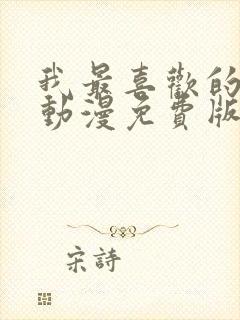 我最喜歡的
動漫免費版
宋詩